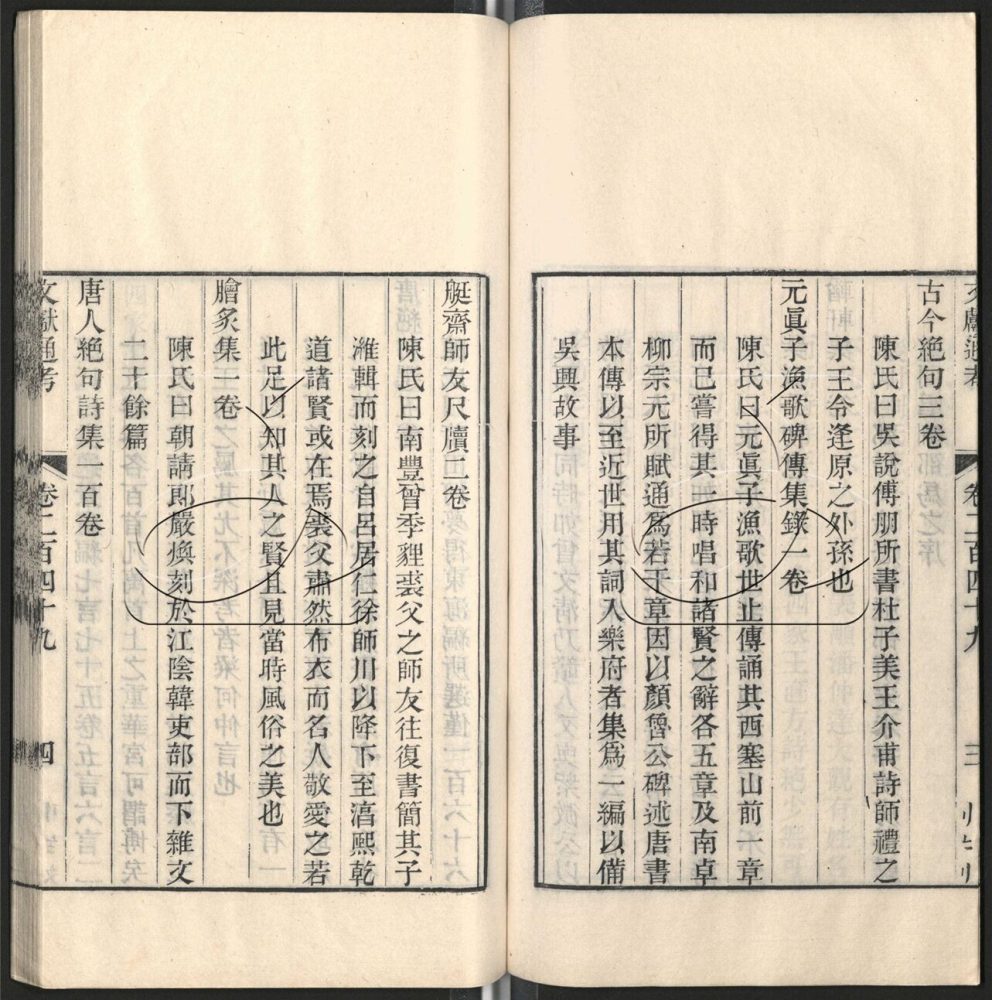 文獻通考 卷二百四十九 三
古今絶句三卷
陳氏曰吳說傅朋所書杜子美王介甫詩師禮之
子王令逢原之外孫也
元眞子漁歌碑傳集錄一卷
陳氏曰元眞子漁歌世止傳誦其西塞山前一章
而已嘗得其一時唱和諸賢之辭各五章及南卓
柳宗元所賦通爲若干章因以顏魯公碑述唐書
本傳以至近世用其詞入樂府者集爲一編以備
吳興故事
艇齋師友尺牘二卷
陳氏曰南豐曾季貍裘父之師友往復書簡其子
濰輯而刻之自呂居仁徐師川以降下至淳熙乾
道諸賢或在焉裘父肅然布衣而名人敬愛之若
此足以知其人之賢且見當時風俗之美也
膾炙集一卷
陳氏曰朝請郎嚴煥刻於江陰韓吏部而下雜文
二十餘篇
唐人絶句詩集一百卷
文獻通考 卷二百四十九 四